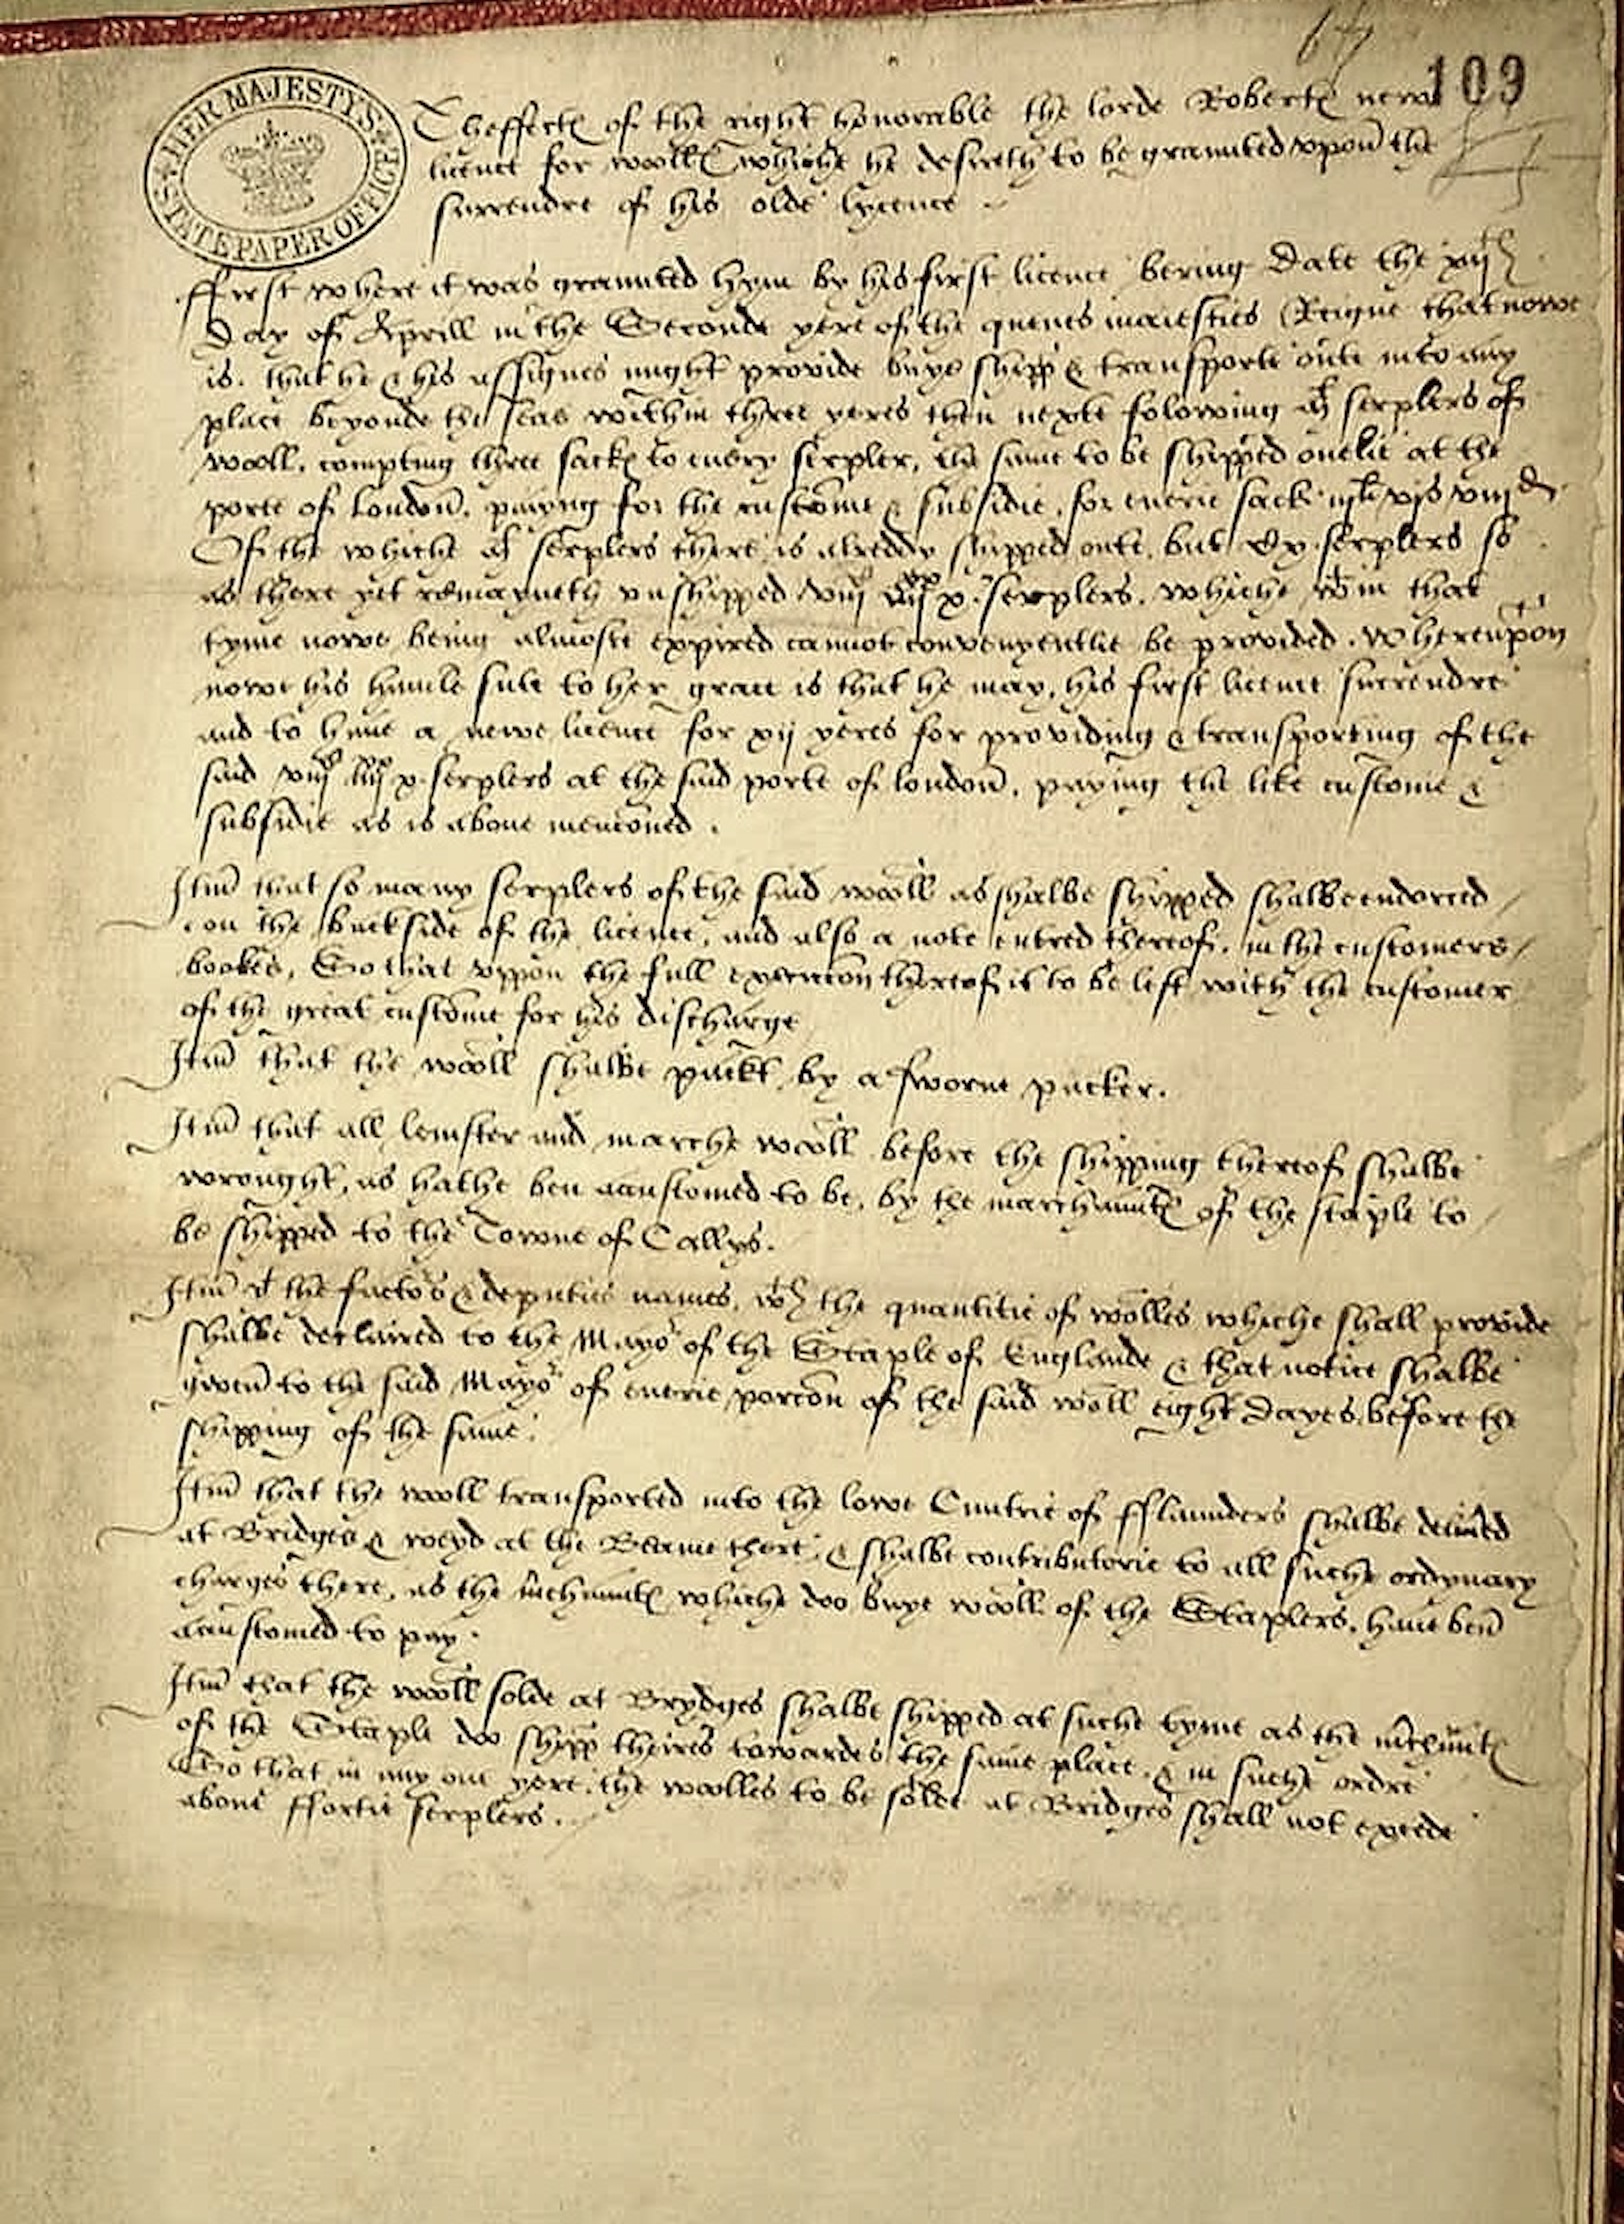 67
109
HER MAJESTY'S
STATE PAPER OFFICE
Theffectes of the right honorable the lorde Robertes newe
licence for wolle whiche he desireth to be graunted vpon the
surrendre of his olde lycence
ffirst where it was graunted hym by his first licence bering date the
day of Aprill in the Seconde yere of the quenes maiesties Reigne that nowe
is. that he & his assignes might provide buye shipp & transporte oute into any
place beyonde the seas within three yeres then nexte folowing mˡ serplers of
woll, compting three sackes to euery serpler, the same to be shipped onelie at the
porte of london, paieng for the custome & subsidie, for euerie sack iijˡⁱ vjs viijd.
Of the whiche mˡ serplers there is alreddy shipped oute, but Cx serplers so
as there yet remayneth vnshipped viijᶜ iiijˣˣ x serplers. whiche wᵗʰin that
tyme nowe being almoste expired cannot convenyentlie be provided. Wherevpon
nowe his humle sute to her grace is that he may, his first licence surrendre
and to haue a newe licence for xij yeres for providing & transporting of the
said viijᶜ iiijˣˣ x serplers at the said porte of london, paying the like custome &
subsidie as is aboue mencōned.
Itm̄ that so many serplers of the said woll as shalbe shipped shalbe endorced
on the backside of the licence, and also a note entred thereof, in the customers
bookes, So that vppon the full execucōn thereof it to be left with the customer
of the great custome for his discharge
Itm̄ that the woll shalbe packt by a sworne packer.
Itm̄ that all lemster and marche woll before the shipping thereof shalbe
wrought, as hathe ben accustomed to be, by the marchauntes of the staple to
be shipped to the Towne of Callys.
Itm̄ yᵗ the factoʳs & deputies names, wᵗʰ the quantitie of wolles whiche shall provide
shalbe declaired to the Mayoʳ of the Staple of Englande & that notice shalbe
given to the said Mayoʳ of euerie porcōn of the said woll eight dayes before the
shipping of the same.
Itm̄ that the woll transported into the lowe Cuntrie of fflaunders shalbe deliu̅ed
at Bridges & weyd at the Beame there, & shalbe contributorie to all suche ordynary
charges there, as the m̄chauntes whiche doo buye woll of the Staplers, haue ben
accustomed to pay.
Itm̄ that the woll solde at Brydges shalbe shipped at suche tyme as the m̄chauntes
of the Staple doo shipp theires towardes the same place, & in suche ordre
So that in any one yere the wolles to be solde at Bridges shall not excede
aboue ffortie serplers.